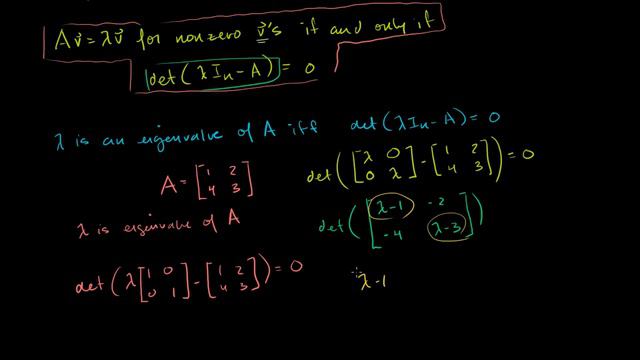 Av⃗ = λv⃗ for nonzero v⃗'s if and only if
det(λIₙ - A) = 0
λ is an eigenvalue of A iff det(λIₙ - A) = 0
A = [1 2; 4 3]
det([λ 0; 0 λ] - [1 2; 4 3]) = 0
λ is eigenvalue of A
det([λ-1 -2; -4 λ-3])
det(λ[1 0; 0 1] - [1 2; 4 3]) = 0
λ-1